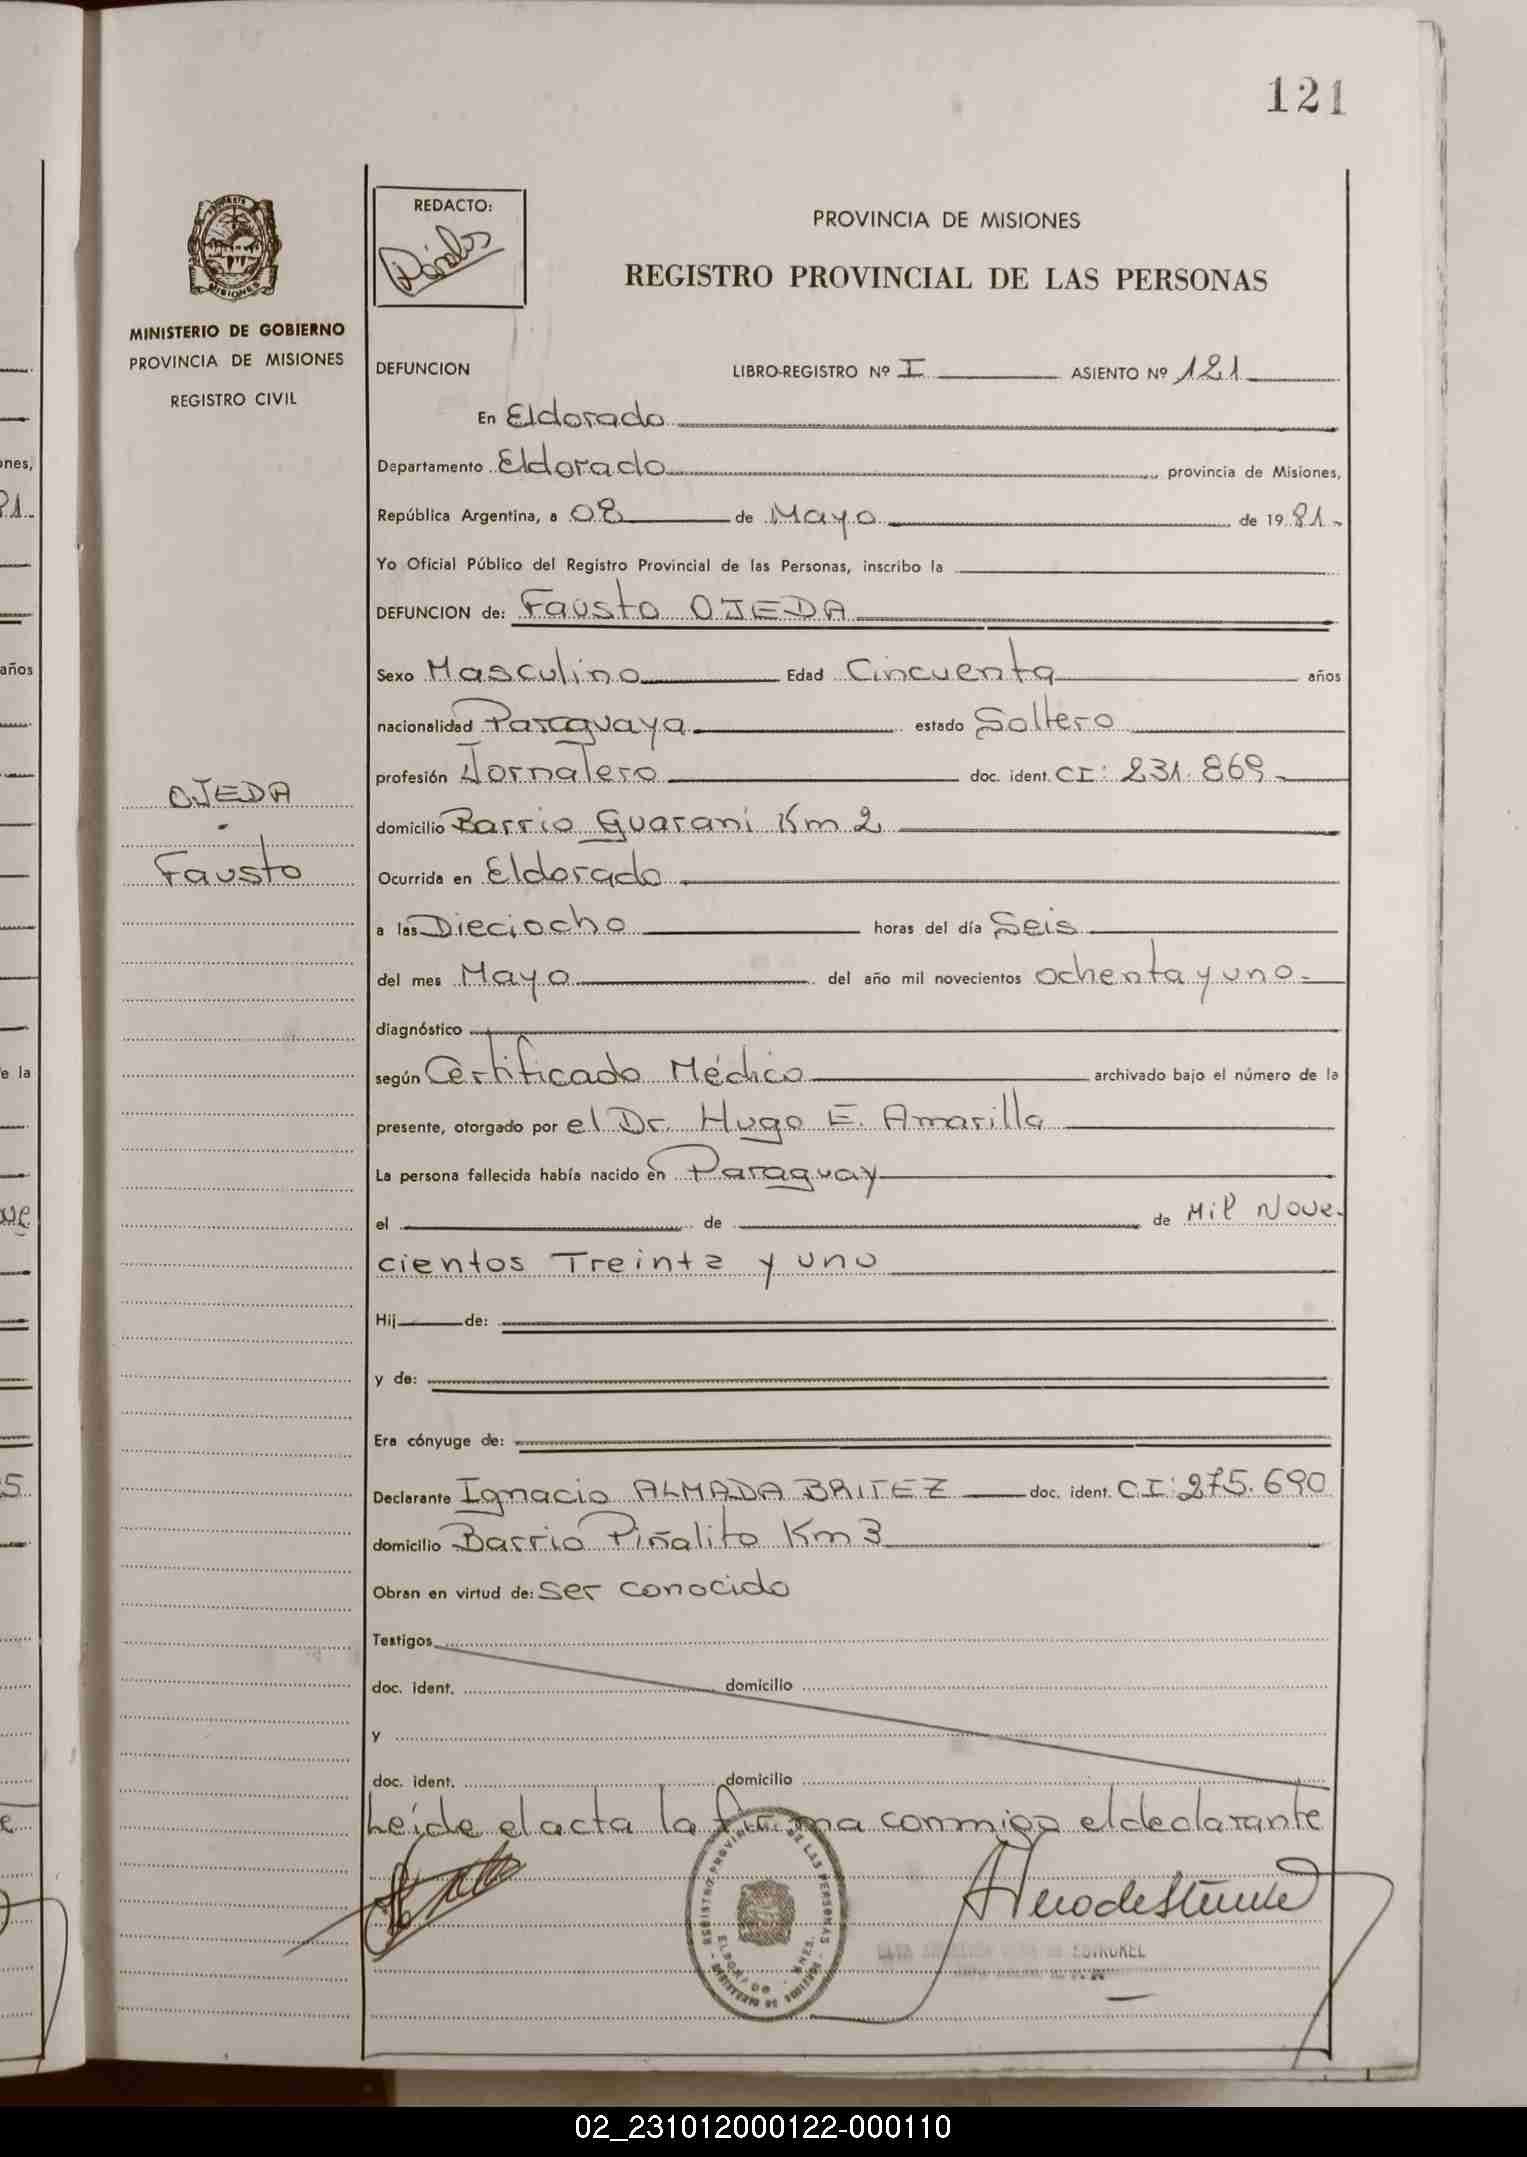 121
REDACTO:
PROVINCIA DE MISIONES
REGISTRO PROVINCIAL DE LAS PERSONAS
MINISTERIO DE GOBIERNO
PROVINCIA DE MISIONES
REGISTRO CIVIL
DEFUNCION LIBRO-REGISTRO Nº I ASIENTO Nº 121
En Eldorado
Departamento Eldorado provincia de Misiones,
República Argentina, a 08 de Mayo de 1981.-
Yo Oficial Público del Registro Provincial de las Personas, inscribo la
DEFUNCION de: Fausto OJEDA
Sexo Masculino Edad Cincuenta años
nacionalidad Paraguaya estado Soltero
profesión Jornalero doc. ident. CI: 231.869
OJEDA
Fausto
domicilio Barrio Guarani Km 2
Ocurrida en Eldorado
a las Dieciocho horas del día Seis
del mes Mayo del año mil novecientos ochenta y uno.-
diagnóstico
según Certificado Médico archivado bajo el número de la
presente, otorgado por el Dr. Hugo E. Amarilla
La persona fallecida había nacido en Paraguay
el de de Mil Nove-
cientos Treinta y uno
Hij de:
y de:
Era cónyuge de:
Declarante Ignacio ALMADA BRITEZ doc. ident. CI: 275.690
domicilio Barrio Piñalito Km 3
Obran en virtud de: ser conocido
Testigos
doc. ident. domicilio
y
doc. ident. domicilio
Leída el acta la firma conmigo el declarante
02_231012000122-000110